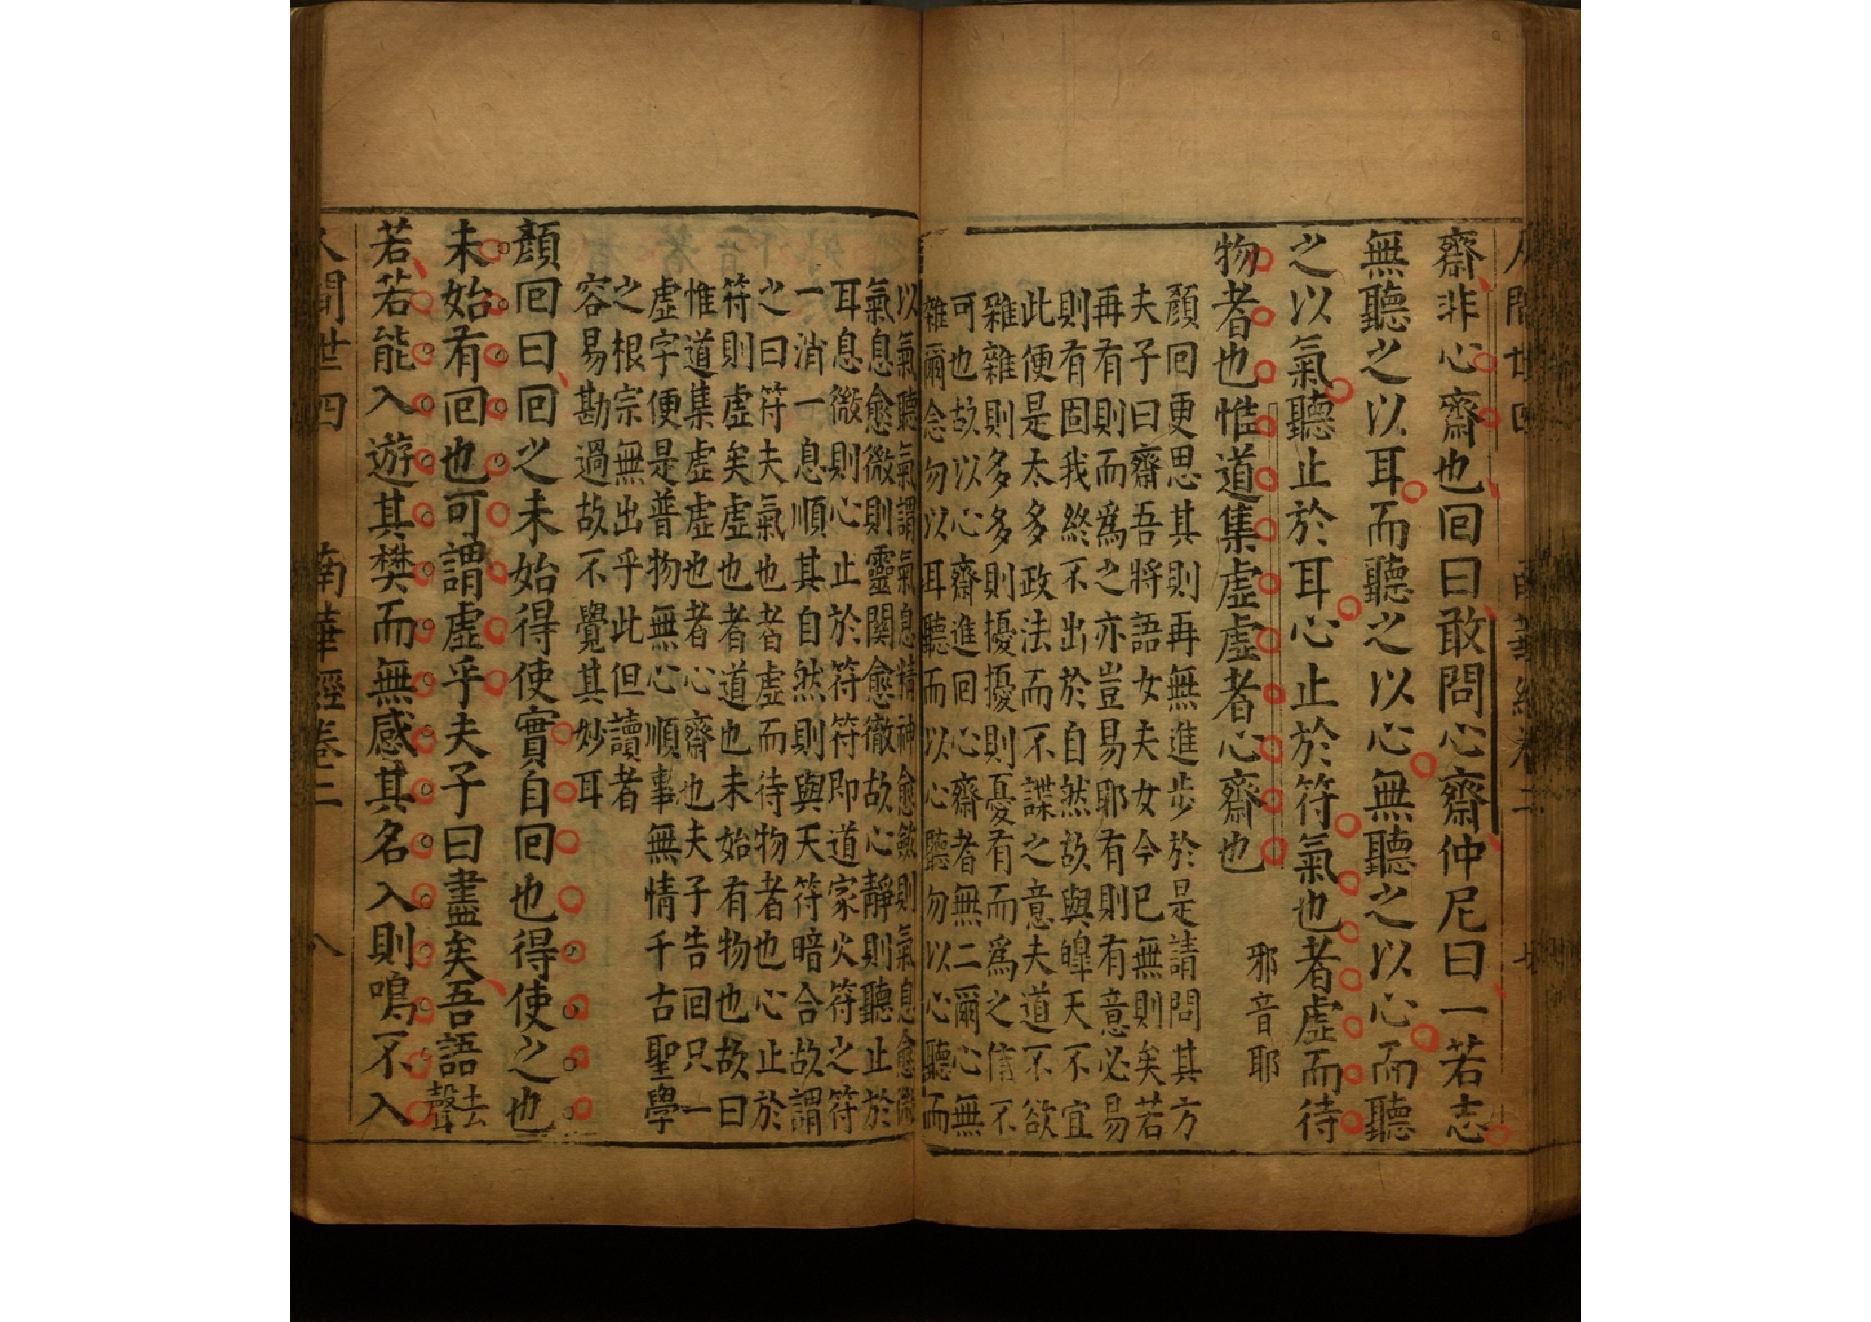 齋非心齋也回曰敢問心齋仲尼曰一若志
無聽之以耳而聽之以心無聽之以心而聽
之以氣聽止於耳心止於符氣也者虛而待
物者也惟道集虛虛者心齋也
邪音耶
顏回更思其則再無進步於是請問其方
夫子曰齋吾將語女夫女今已無則矣若
再有則而為之亦豈易耶有則有意必易
則有固我終不出於自然故與皥天不宜
此便是太多政法而不諜之意夫道不欲
雜雜則多多則擾擾則憂有而為之信不
可也故以心齋進回心齋者無二爾心無
雜爾念勿以耳聽而以心聽勿以心聽而
以氣聽氣謂氣息精神愈斂則氣息愈微
氣息愈微則靈關愈徹故心靜則聽止於
耳息微則心止於符符即道家火符之符
一消一息順其自然則與天符暗合故謂
之曰符夫氣也者虛而待物者也心止於
符則虛矣虛也者道也未始有物也故曰
惟道集虛虛也者心齋也夫子告回只一
虛字便是普物無心順事無情千古聖學
之根宗無出乎此但讀者
容易勘過故不覺其妙耳
顏回曰回之未始得使實自回也得使之也
未始有回也可謂虛乎夫子曰盡矣吾語去聲
若若能入遊其樊而無感其名入則鳴不入
人間世四 南華經卷三 八